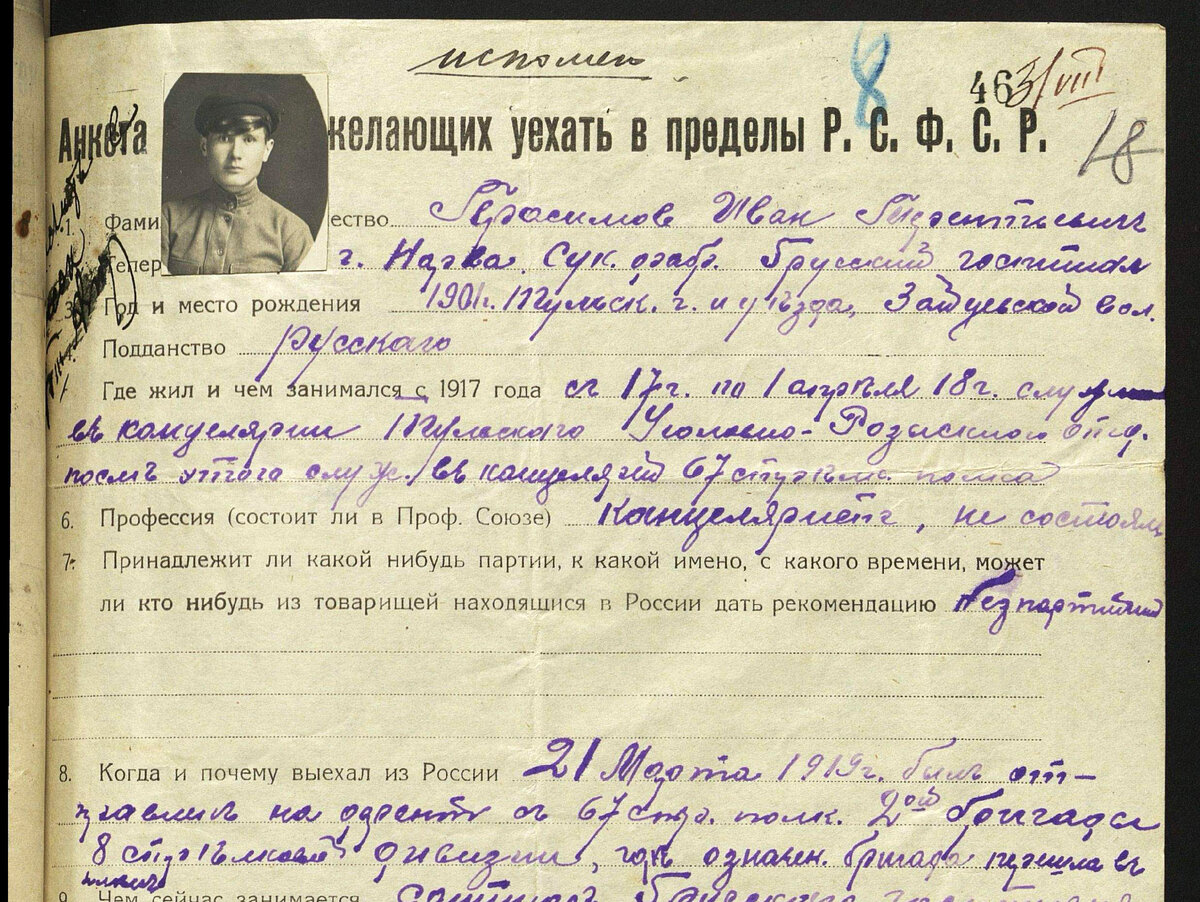 исполнен
8
463/VIII
Анкета желающих уехать в пределы Р. С. Ф. С. Р.
18
1. Фами ество Герасимов Иван
Тепер г. Нарва. Сук. фабр.
3. Год и место рождения 1901г. Тульск. г. и уѣзда, Зайцевской вол.
Подданство Русскаго
Где жил и чем занимался с 1917 года съ 17г. по 1 апрѣля 18г.
въ канцелярии Тульскаго Уголовно-Розыскного отд.
послѣ этого служ. въ канцелярий 67 стрѣлк. полка
6. Профессия (состоит ли в Проф. Союзе) Канцеляристъ, не состоял
7. Принадлежит ли какой нибудь партии, к какой имено, с какого времени, может
ли кто нибудь из товарищей находящися в России дать рекомендацию безпартийный
8. Когда и почему выехал из России 21 Марта 1919г. былъ от-
правленъ на фронтъ съ 67 стр. полк. 2ой бригады
8 стрѣлковой дивизии, гдѣ означен. бригада перешла въ
9. Чем сейчас занимается